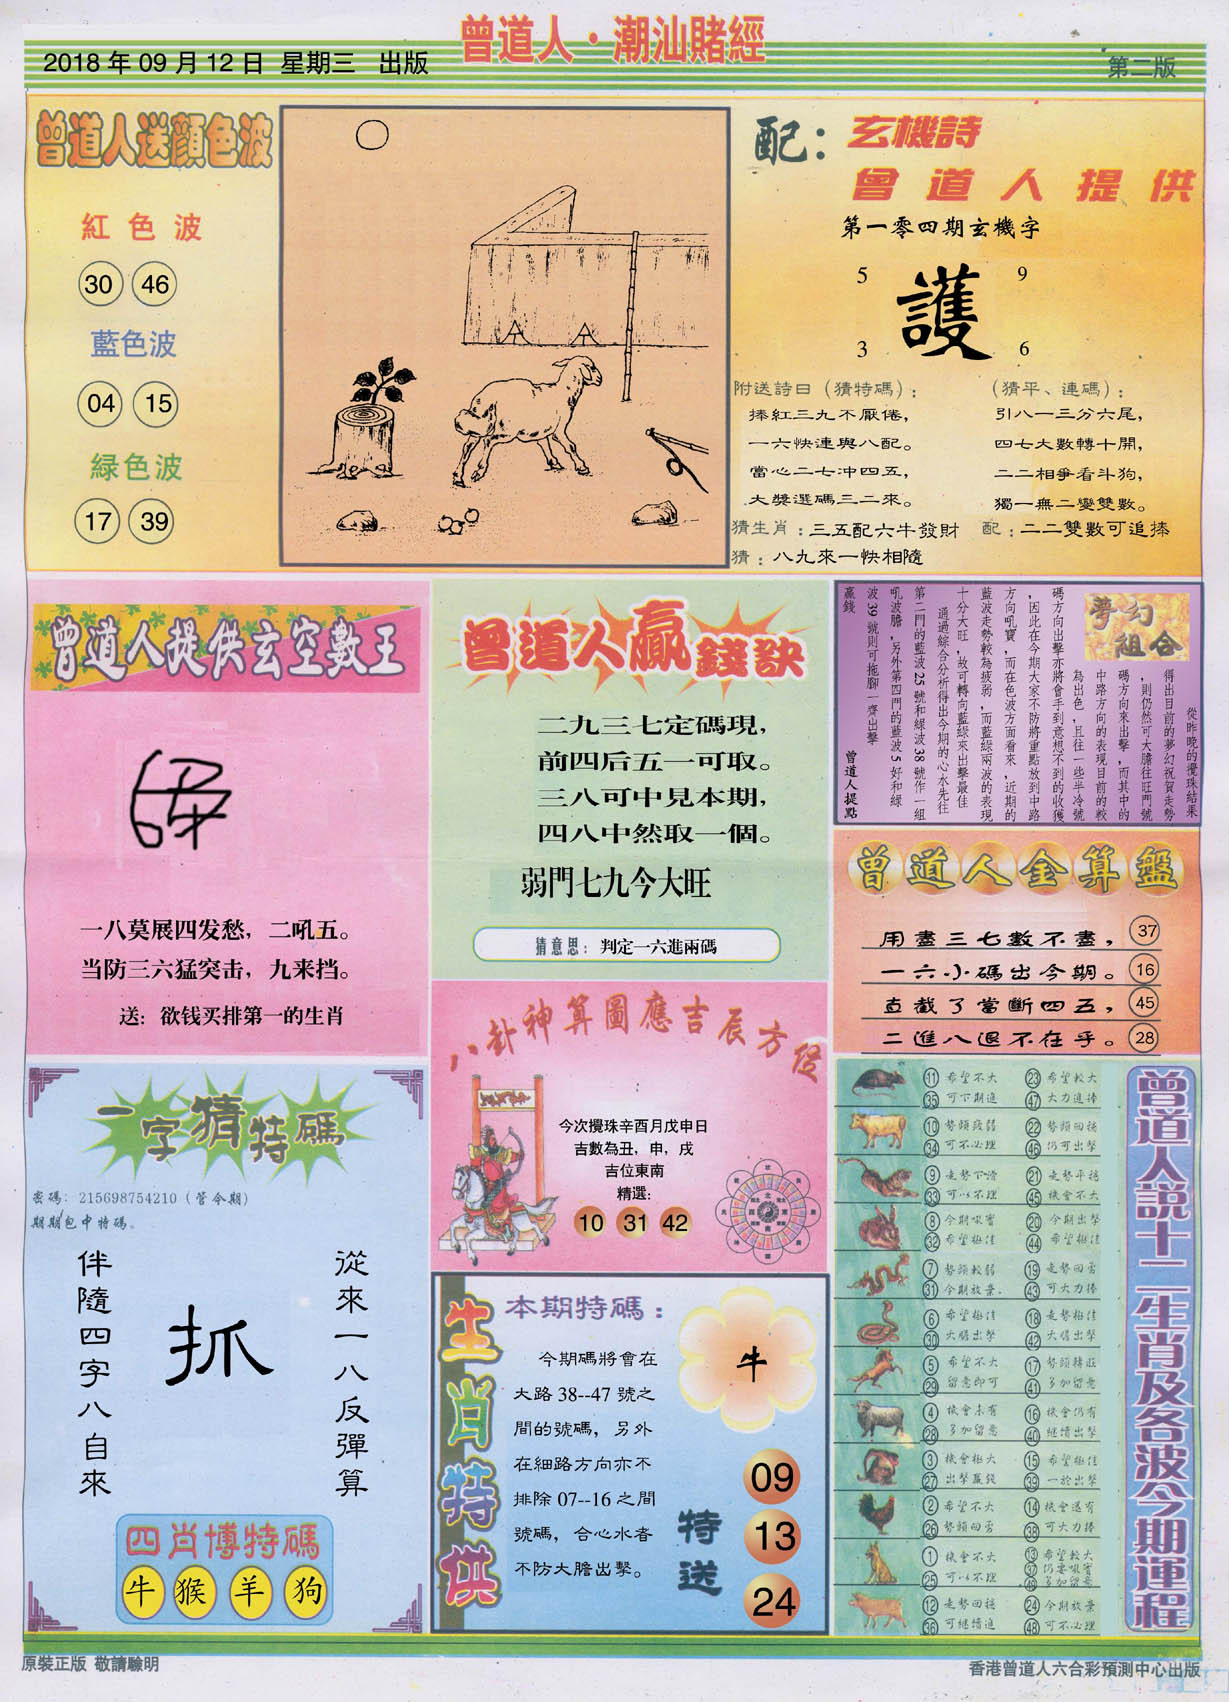 曾道人·潮汕賭經
2018年09月12日 星期三 出版
第二版
曾道人送顏色波
紅色波
30 46
藍色波
04 15
緑色波
17 39
配：玄機詩
曾道人提供
第一零四期玄機字
5 9
護
3 6
附送詩曰（猜特碼）：
捧紅三九不厭倦，
一六快連與八配。
當心二七冲四五，
大獎選碼三二來。
（猜平、連碼）：
引八一三分六尾，
四七大數轉十開，
二二相爭看斗狗，
獨一無二變雙數。
猜生肖：三五配六牛發財
配：二二雙數可追捧
猜：八九來一快相隨
曾道人提供玄空數王
一八莫展四发愁，二吼五。
当防三六猛突击，九来挡。
送：欲钱买排第一的生肖
曾道人贏錢訣
二九三七定碼現，
前四后五一可取。
三八可中見本期，
四八中然取一個。
弱門七九今大旺
猜意思：判定一六進兩碼
夢幻
組合
從昨晚的攪珠結果
得出目前的夢幻祝賀走勢
，則仍然可大膽往旺門號
碼方向來出擊，而其中的
中路方向的表現目前的較
為出色，且往一些半冷號
碼方向出擊亦將會手到意想不到的收獲
，因此在今期大家不防將重點放到中路
方向吼寶，而在色波方面看來，近期的
藍波走勢較為疲弱，而藍綠兩波的表現
十分大旺，故可轉向藍綠來出擊最佳
通過綜合分析得出今期的心水先往
第二門的藍波25號和綠波38號作一組
吼波膽，另外第四門的藍波5好和綠
波39號則可拖腳一齊出擊
贏錢
曾道人提點
曾道人金算盤
用盡三七數不盡， 37
一六小碼出今期。 16
直截了當斷四五， 45
二進八退不在乎。 28
八卦神算圖應吉辰方位
今次攪珠辛酉月戊申日
吉數為丑，申，戌
吉位東南
精選：
10 31 42
一字猜特碼
密碼：215698754210（管今期）
期期包中特碼。
從來一八反彈算
抓
伴隨四字八自來
四肖博特碼
牛 猴 羊 狗
生肖特供
本期特碼：
今期碼將會在
大路38--47號之
間的號碼，另外
在細路方向亦不
排除07--16之間
號碼，合心水者
不防大膽出擊。
牛
特送
09
13
24
曾道人說十二生肖及各波今期運程
11 希望不大 23 希望較大
35 可下期進 47 大力進捧
10 勢頭疲弱 22 勢頭回穩
34 可不必理 46 仍可出擊
9 走勢下滑 21 走勢平穩
33 可以不理 45 機會不大
8 今期吸寶 20 今期出擊
32 希望極佳 44 希望極佳
7 勢頭較弱 19 走勢回勇
31 今期放棄 43 可大力捧
6 希望極佳 18 走勢極佳
30 大膽出擊 42 大膽出擊
5 希望不大 17 勢頭轉旺
29 留意即可 41 多加留意
4 機會未有 16 機會仍有
28 多加留意 40 繼續出擊
3 機會極大 15 希望極佳
27 出擊贏錢 39 一於出擊
2 希望不大 14 機會還有
26 勢頭回勇 38 可大力捧
1 機會不大 13 希望較大
25 可以不理 37 仍要吸寶
49 多加留意
12 走勢回穩 24 今期放棄
36 可繼續進 48 可不必理
原裝正版 敬請驗明
香港曾道人六合彩預測中心出版